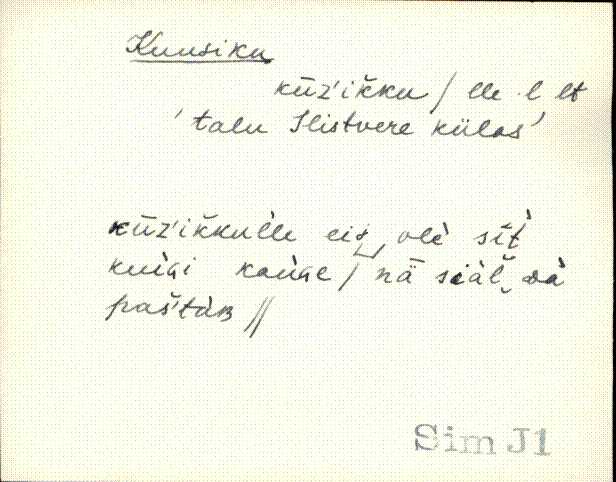 Kuusiku
kūz'ikku / lle -l -lt
'talu Ilistvere külas'
kūz'ikkulle eiɂ‿ole sīt
kuigi kauge / nǟ siäl‿
paštab //
Sim J1